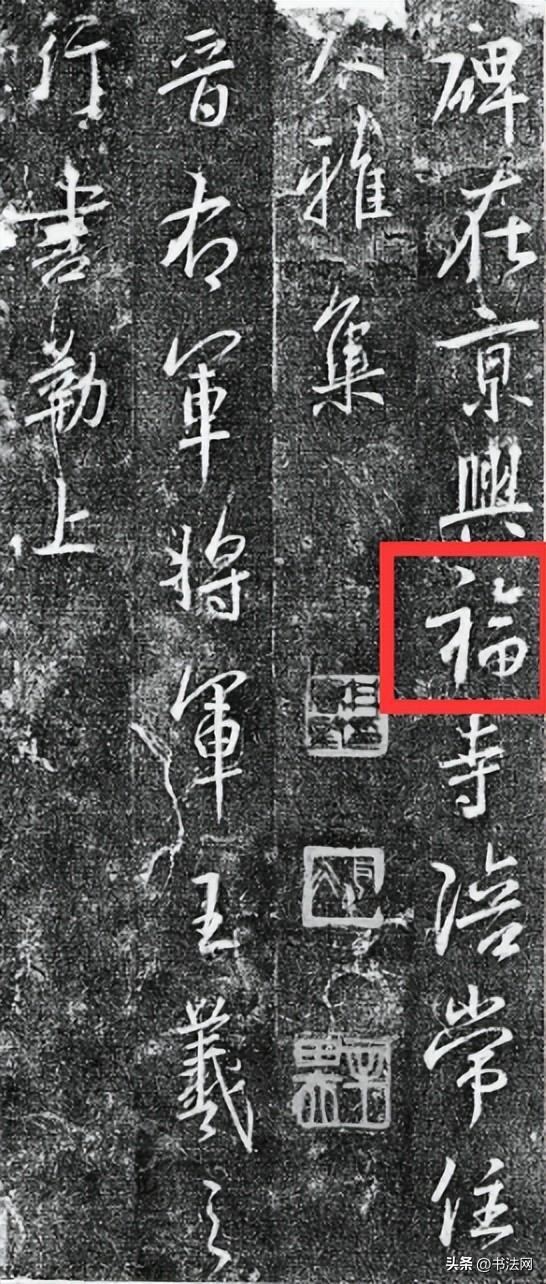 碑在京興福寺陪常住
雅集
晉右軍將軍王羲之
行書勒上
头条 @书法网